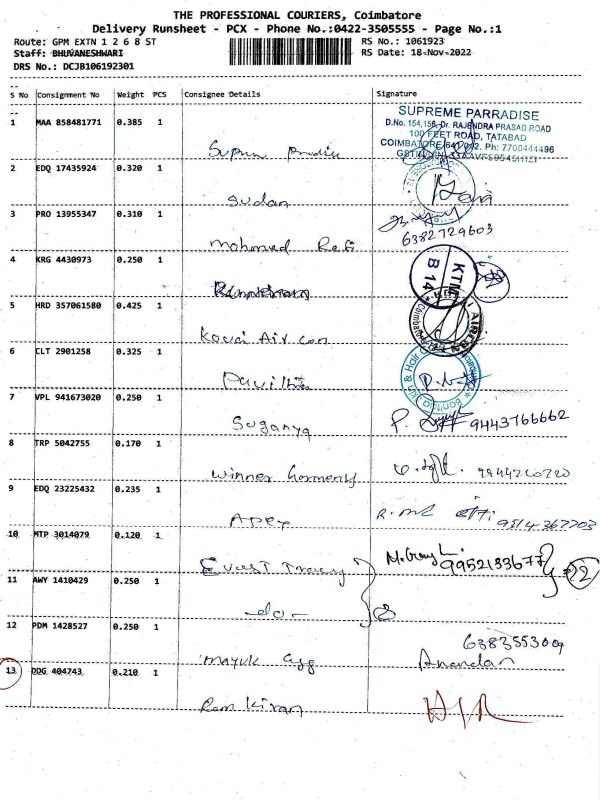 THE PROFESSIONAL COURIERS, Coimbatore
Delivery Runsheet - PCX - Phone No.:0422-3505555 - Page No.:1
Route: GPM EXTN 1 2 6 8 ST
RS No.: 1061923
Staff: BHUVANESHWARI
RS Date: 18-Nov-2022
DRS No.: DCJB106192301
S No Consignment No Weight PCS Consignee Details Signature
1 MAA 858481771 0.385 1
SUPREME PARRADISE
D.No. 154,156, Dr. RAJENDRA PRASAD ROAD
100 FEET ROAD, TATABAD
COIMBATORE 641012. Ph: 7708444496
2 EDQ 17435924 0.320 1
Sudan
3 PRO 13955347 0.310 1
6382729603
Mohmed Rafi
4 KRG 4430973 0.250 1
KTM
B 14
5 HRD 357061580 0.425 1
Kovai Air Con
6 CLT 2901258 0.325 1
Skin & Hair
7 VPL 941673020 0.250 1
Suganya
P. 9443766662
8 TRP 5042755 0.170 1
Winner Garments
9944210720
9 EDQ 23225432 0.235 1
Apex
10 MTP 3014079 0.120 1
9952133677
22
11 AWY 1410429 0.250 1
-do-
12 PDM 1428527 0.250 1
Anandan
13 DDG 404743 0.210 1
Ram Kiran